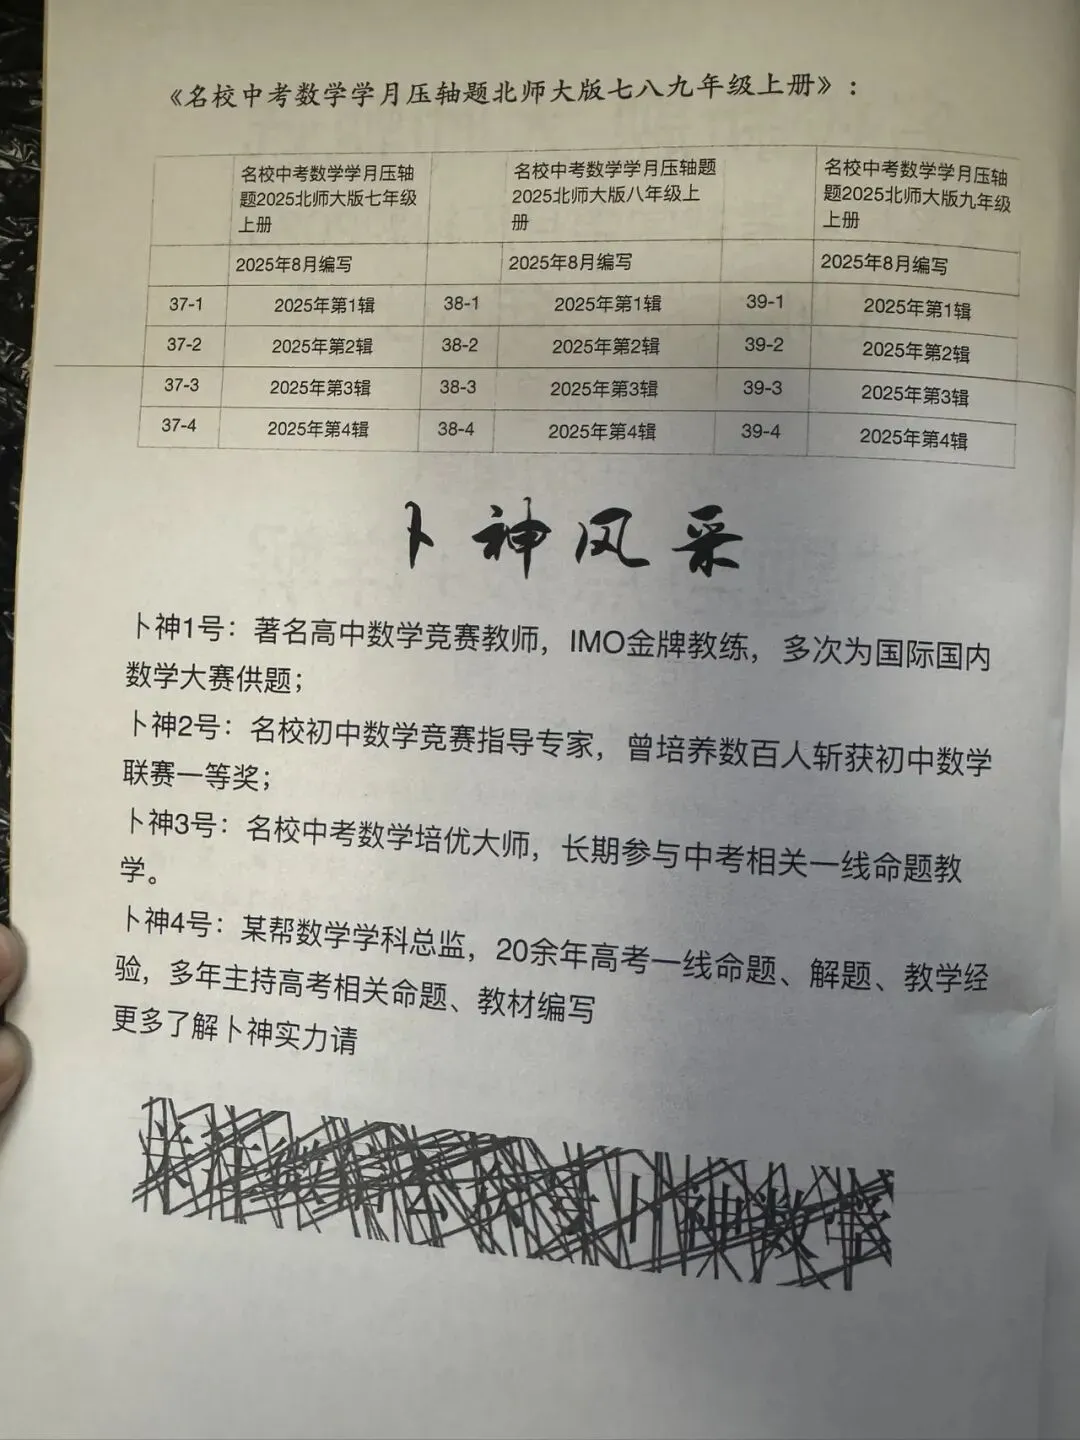 《名校中考数学学月压轴题北师大版七八九年级上册》：
名校中考数学学月压轴
题2025北师大版七年级
上册
名校中考数学学月压轴题
2025北师大版八年级上
册
名校中考数学学月压轴
题2025北师大版九年级
上册
2025年8月编写 2025年8月编写 2025年8月编写
37-1 2025年第1辑 38-1 2025年第1辑 39-1 2025年第1辑
37-2 2025年第2辑 38-2 2025年第2辑 39-2 2025年第2辑
37-3 2025年第3辑 38-3 2025年第3辑 39-3 2025年第3辑
37-4 2025年第4辑 38-4 2025年第4辑 39-4 2025年第4辑
卜神风采
卜神1号：著名高中数学竞赛教师，IMO金牌教练，多次为国际国内
数学大赛供题；
卜神2号：名校初中数学竞赛指导专家，曾培养数百人斩获初中数学
联赛一等奖；
卜神3号：名校中考数学培优大师，长期参与中考相关一线命题教
学。
卜神4号：某帮数学学科总监，20余年高考一线命题、解题、教学经
验，多年主持高考相关命题、教材编写
更多了解卜神实力请
卜神数学